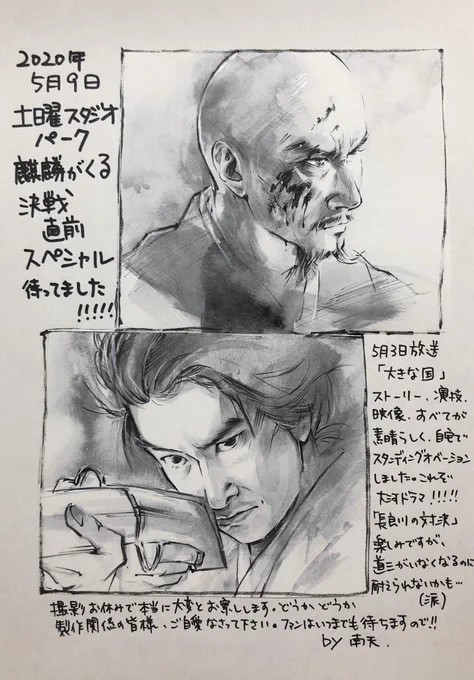 2020年
5月9日
土曜スタジオ
パーク
麒麟がくる
決戦
直前
スペシャル
待ってました
!!!!!
5月3日放送
「大きな国」
ストーリー、演技、
映像、すべてが
素晴らしく、自宅で
スタンディングオベーション
しました。これぞ
大河ドラマ!!!!!
「長良川の対決」
楽しみですが、
道三がいなくなるのに
耐えられないかも…
(涙)
撮影お休みで本当に大変とお察しします。どうか、どうか
製作関係の皆様、ご自愛なさって下さい。ファンはいつまでも待ちますので!!
by 南天.